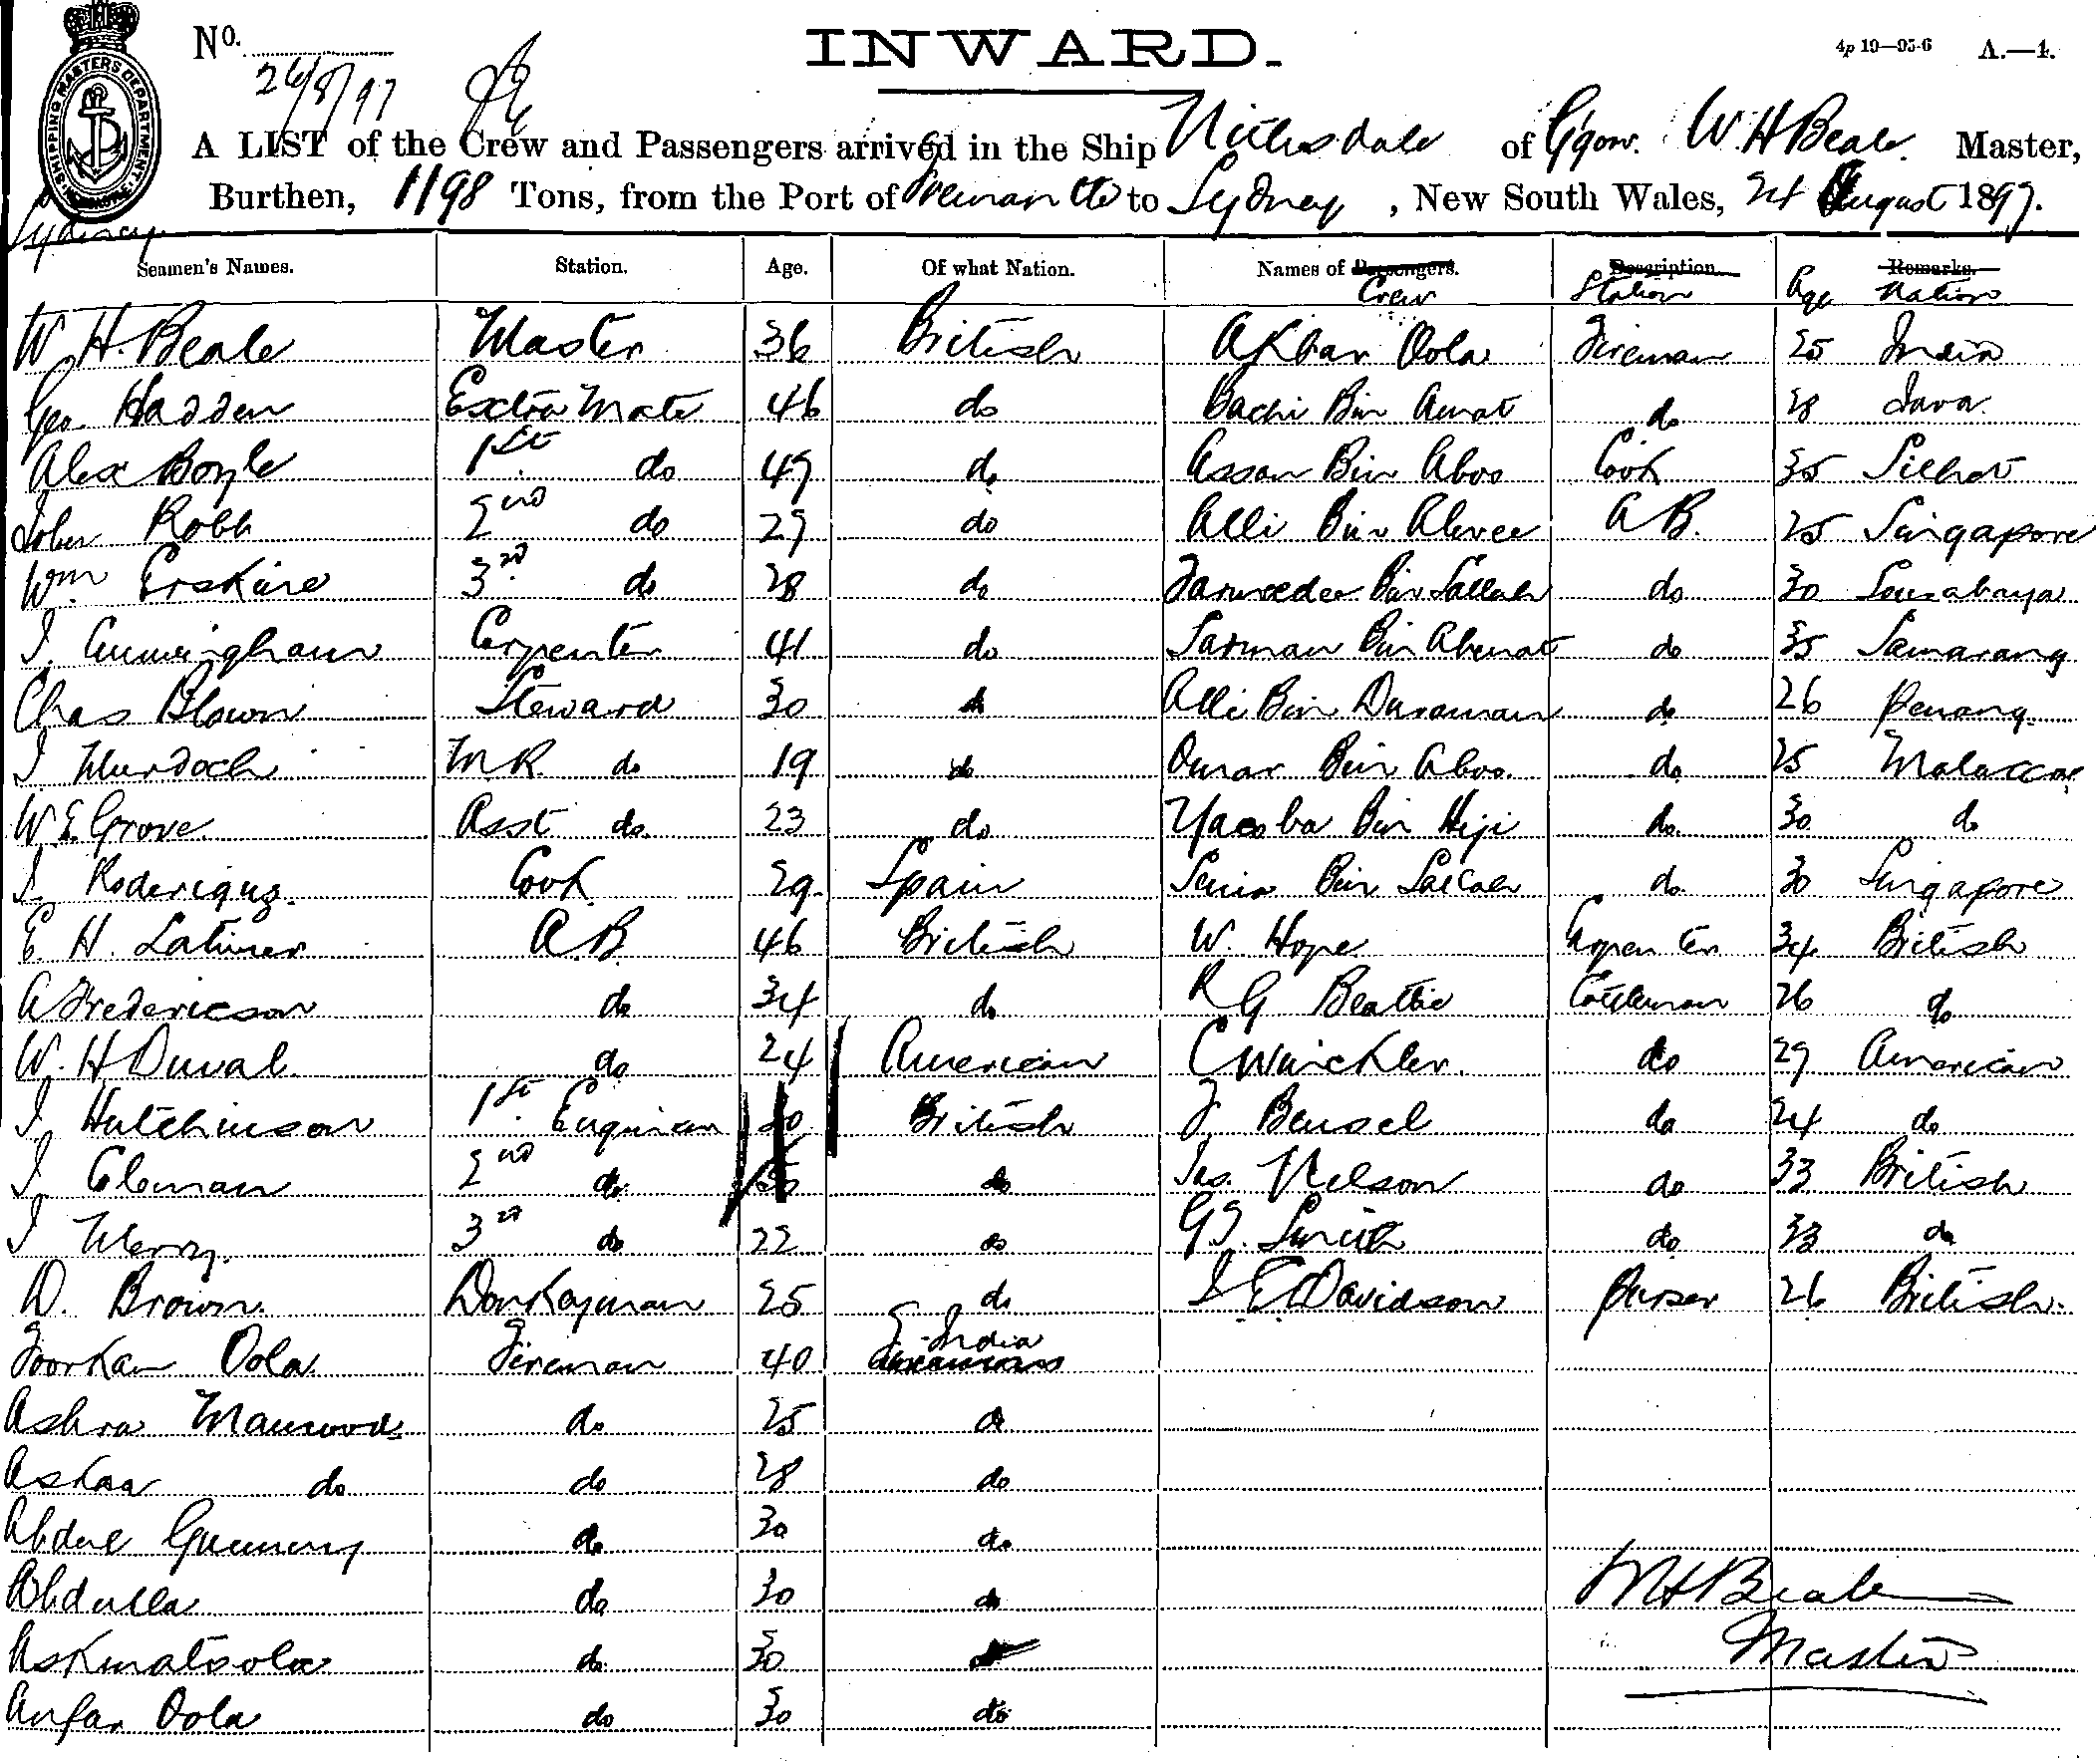 No.
26/8/97
INWARD.
4p 19—95-6 A.—1.
SHIPPING MASTERS DEPARTMENT
A LIST of the Crew and Passengers arrived in the Ship Nithsdale of Ggow. W. H Beale. Master,
Burthen, 1198 Tons, from the Port of Fremantle to Sydney, New South Wales, 24 August 1897.
Sydney
Seamen's Names. Station. Age. Of what Nation. Names of Passengers. Crew Description. Station Age Remarks. Nation
W. H. Beale Master 36 British Akbar Oola Fireman 25 India
Geo. Hadden Extra Mate 46 do Bachi Bin Amat do 28 Java.
Alex Boyle 1st do 49 do Assan Bin Aboo Cook 35 Silhot
John Robb 2nd do 29 do Alli Bin Alwee A B. 25 Singapore
Wm Erskine 3rd do 28 do Bin Sallah do 30 Sourabaya
J. Cunningham Carpenter 41 do Sarman Bin Ahmat do 35 Samarang
Chas Blown Steward 30 do Alli Bin Duraman do 26 Penang.
J Murdoch M R. do 19 do Omar Bin Aboo. do 25 Malacca
W. E. Grove. Asst do. 23 do Yacoba Bin Hiji do. 30 do
J. Roderiquz. Cook 29. Spain Bin do. 30 Singapore
E. H. Latimer A. B. 46 British W. Hope Carpenter 34 British
A Fredericson do 34 do R G Beattie Cattleman 26 do
W. H Duval. do 24 American C Winckler. do 29 American
J. Hutchinson 1st Enginean 30 British F Bensel do 24 do
J. Coleman 2nd do. do Jas. Nelson do 33 British
J Merry. 3rd do 22 do G S. Smith do 33 do
D. Brown. Donkeyman 25 do J E Davidson Purser 26 British.
Toorkan Oola. Fireman 40 India
Ashra Mamood do 25 do
Askaa do do 28 do
Abdul Gunny do 30 do.
Abdulla do 30 do W H Beale
Askmatoola do. 30 do Master
Anfar Oola do 30 do